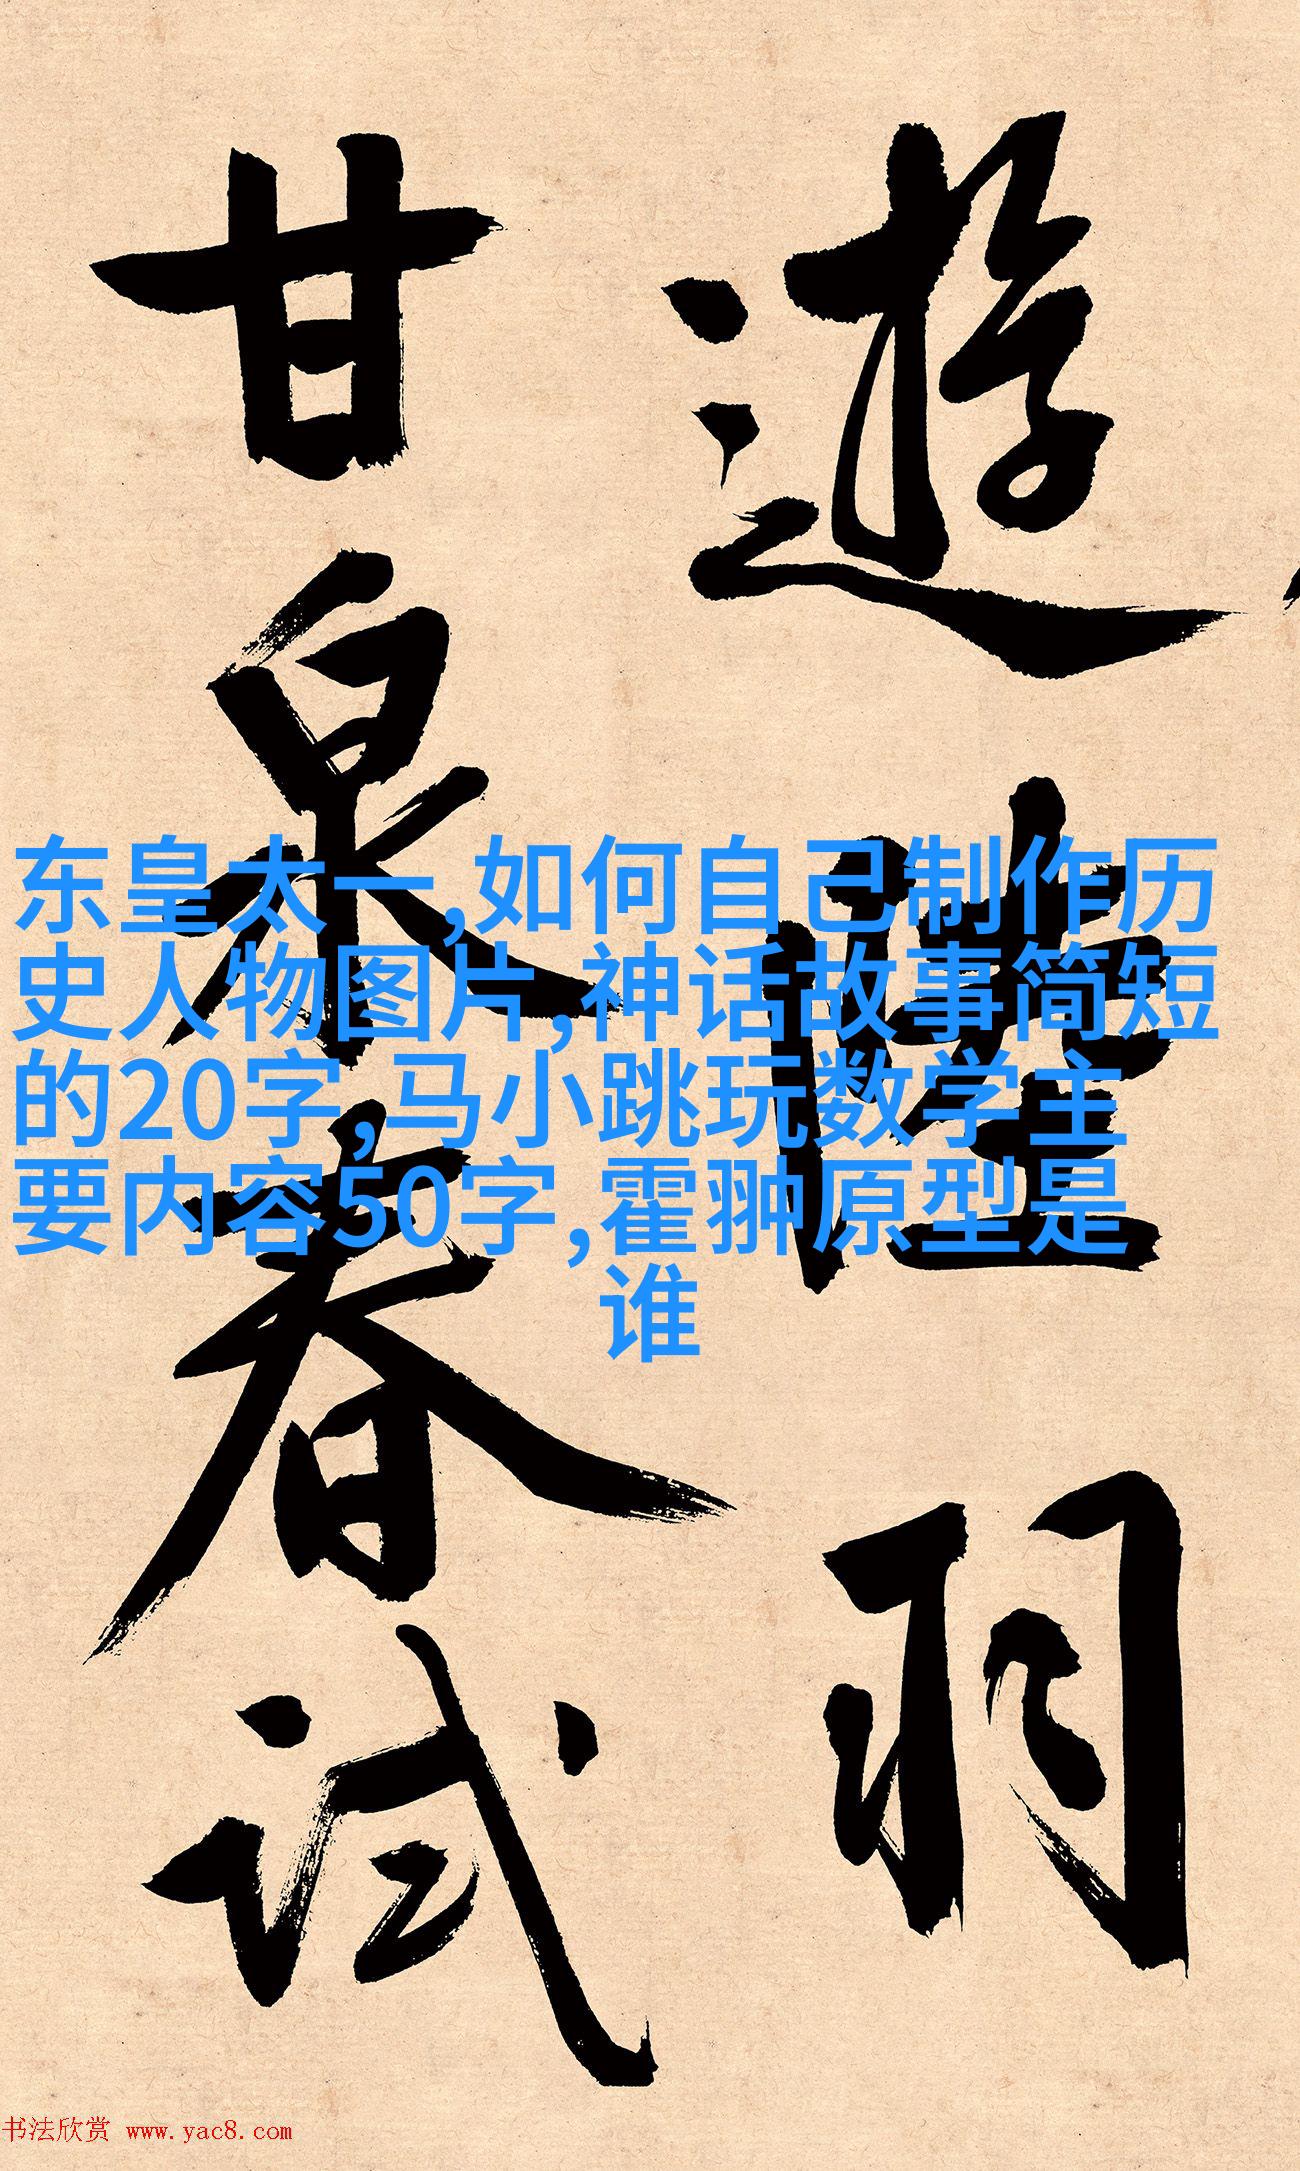 遊陸羽
甘泉春试
东皇太一,如何自己制作历
史人物图片,神话故事简短
的20字,马小跳玩数学主
要内容50字,霍翀原型是
谁
书法欣赏 www.yac8.com